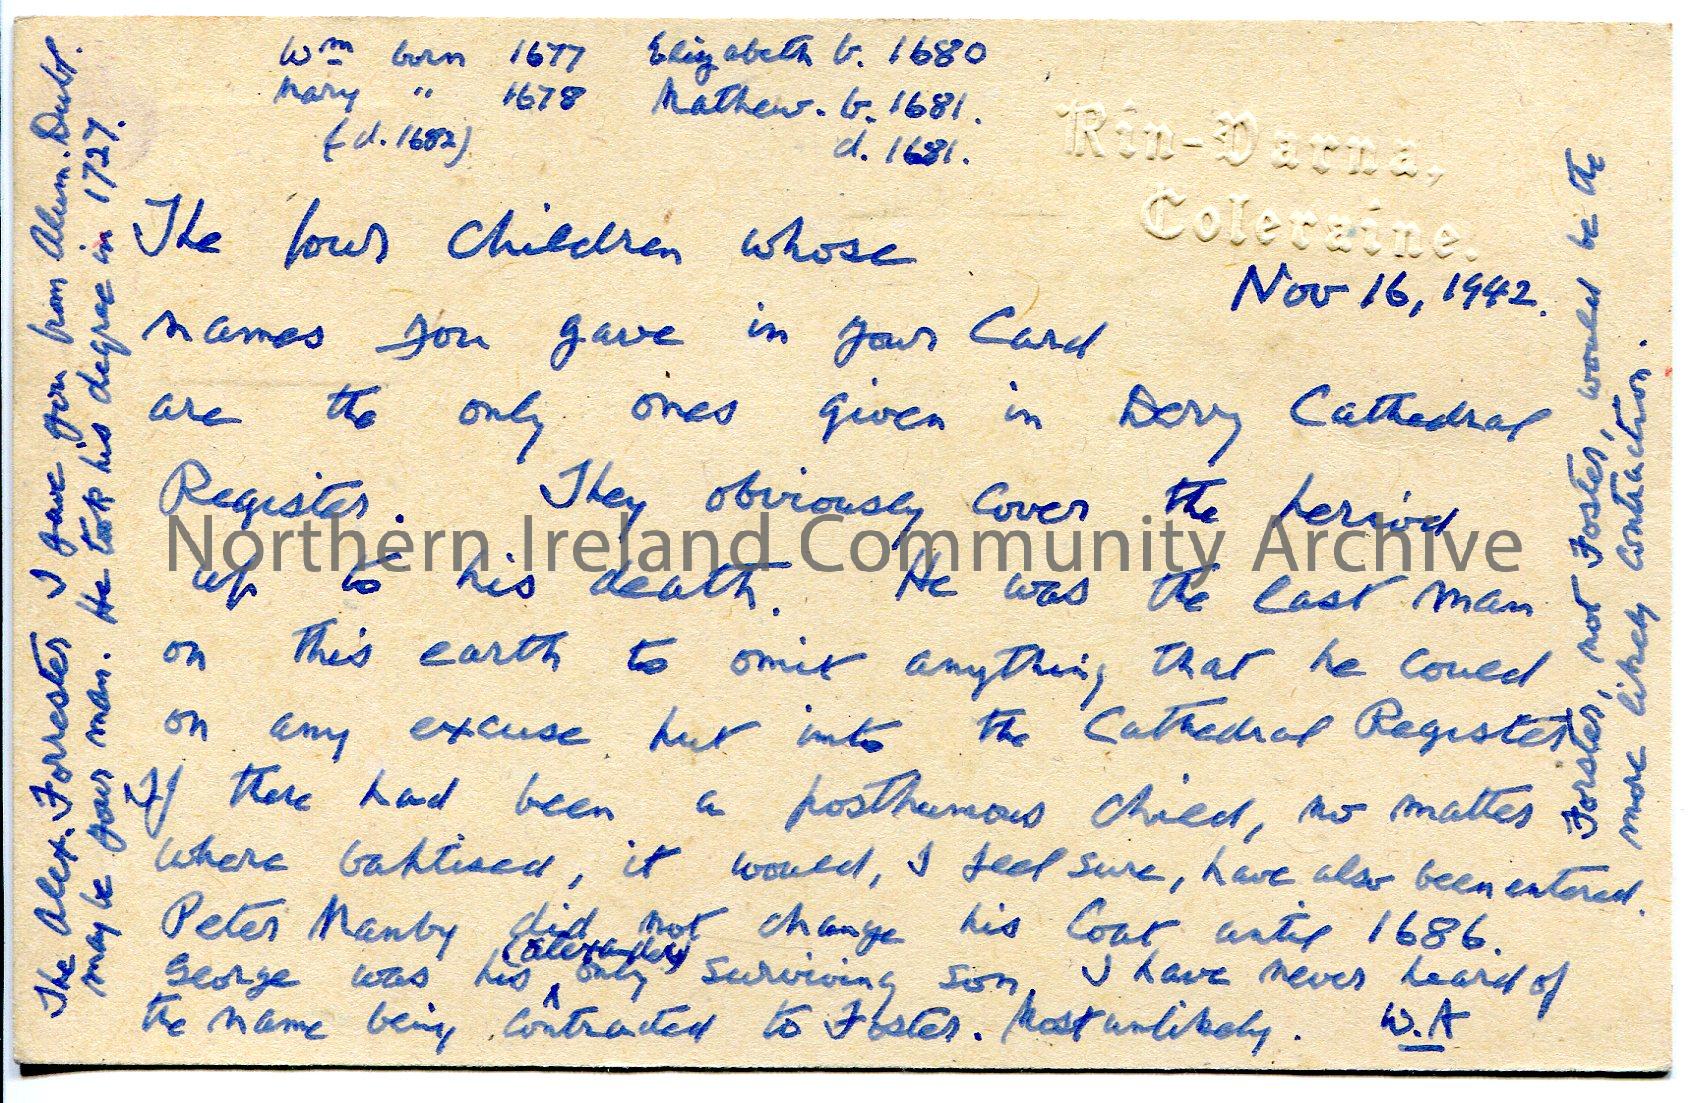 Wm born 1677 Elizabeth b. 1680
Mary " 1678 Mathew. b. 1681.
(d. 1682) d. 1681.
Rin-Darna,
Coleraine.
Nov 16, 1942.
The four children whose
names you gave in your Card
are the only ones given in Derry Cathedral
Register. They obviously cover the period
up to his death. He was the last man
on this earth to omit anything that he could
on any excuse put into the Cathedral Register
If there had been a posthumous child, no matter
where baptised, it would, I feel sure, have also been entered.
Peter Manby did not change his Coat until 1686.
(Alexander's)
George was his only surviving son. I have never heard of
the name being contracted to Foster. Most unlikely. W.A
Forster, not Foster, would be the
more likely contraction.
The Alex. Forrester I gave you from Alum. Dubl.
may be your man. He took his degree in 1727.
Northern Ireland Community Archive